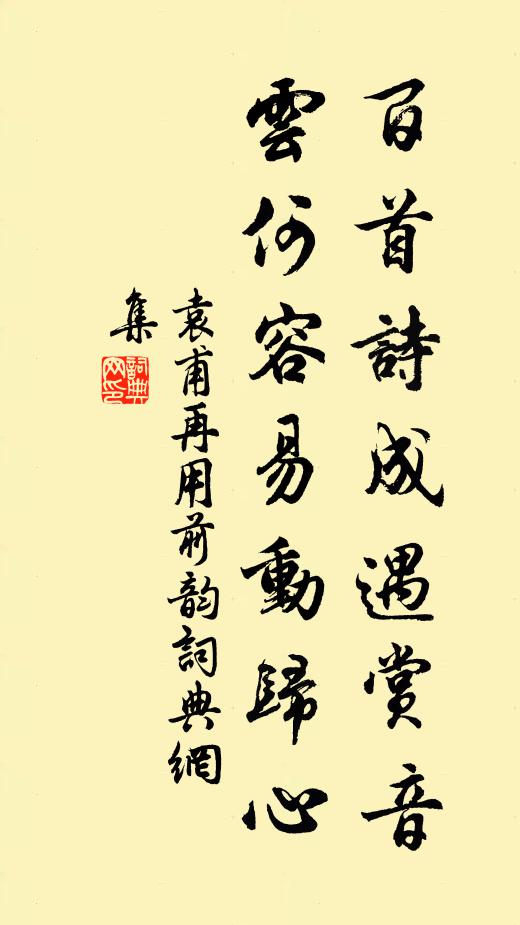 百首詩成遇賞音
雲何容易動歸心
袁甫再用前韵詞典網
集
詞典网印